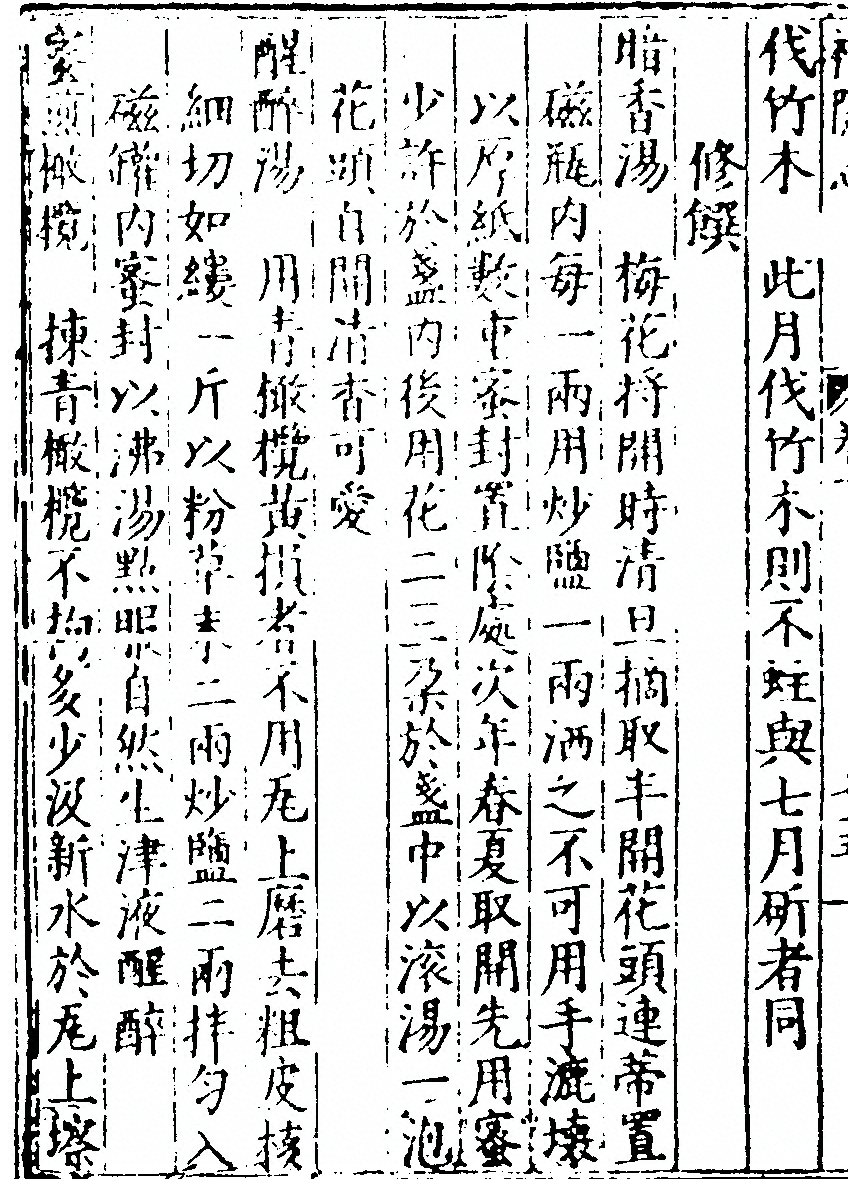 伐竹木　此月伐竹木則不蛀與七月斫者同
修饌
暗香湯　梅花將開時清旦摘取半開花頭連蒂置
磁瓶内每一兩用炒鹽一兩洒之不可用手漉壞
以厚紙數重密封置陰處次年春夏取開先用蜜
少許於盞内後用花二三朶於盞中以滚湯一泡
花頭自開清香可愛
醒醉湯　用青橄欖黄損者不用瓦上磨去粗皮核
細切如縷一斤以粉草末二兩炒鹽二兩拌匀入
磁罐内蜜封以沸湯點服自然生津液醒醉
蜜煎橄欖　揀青橄欖不拘多少汲新水於瓦上擦